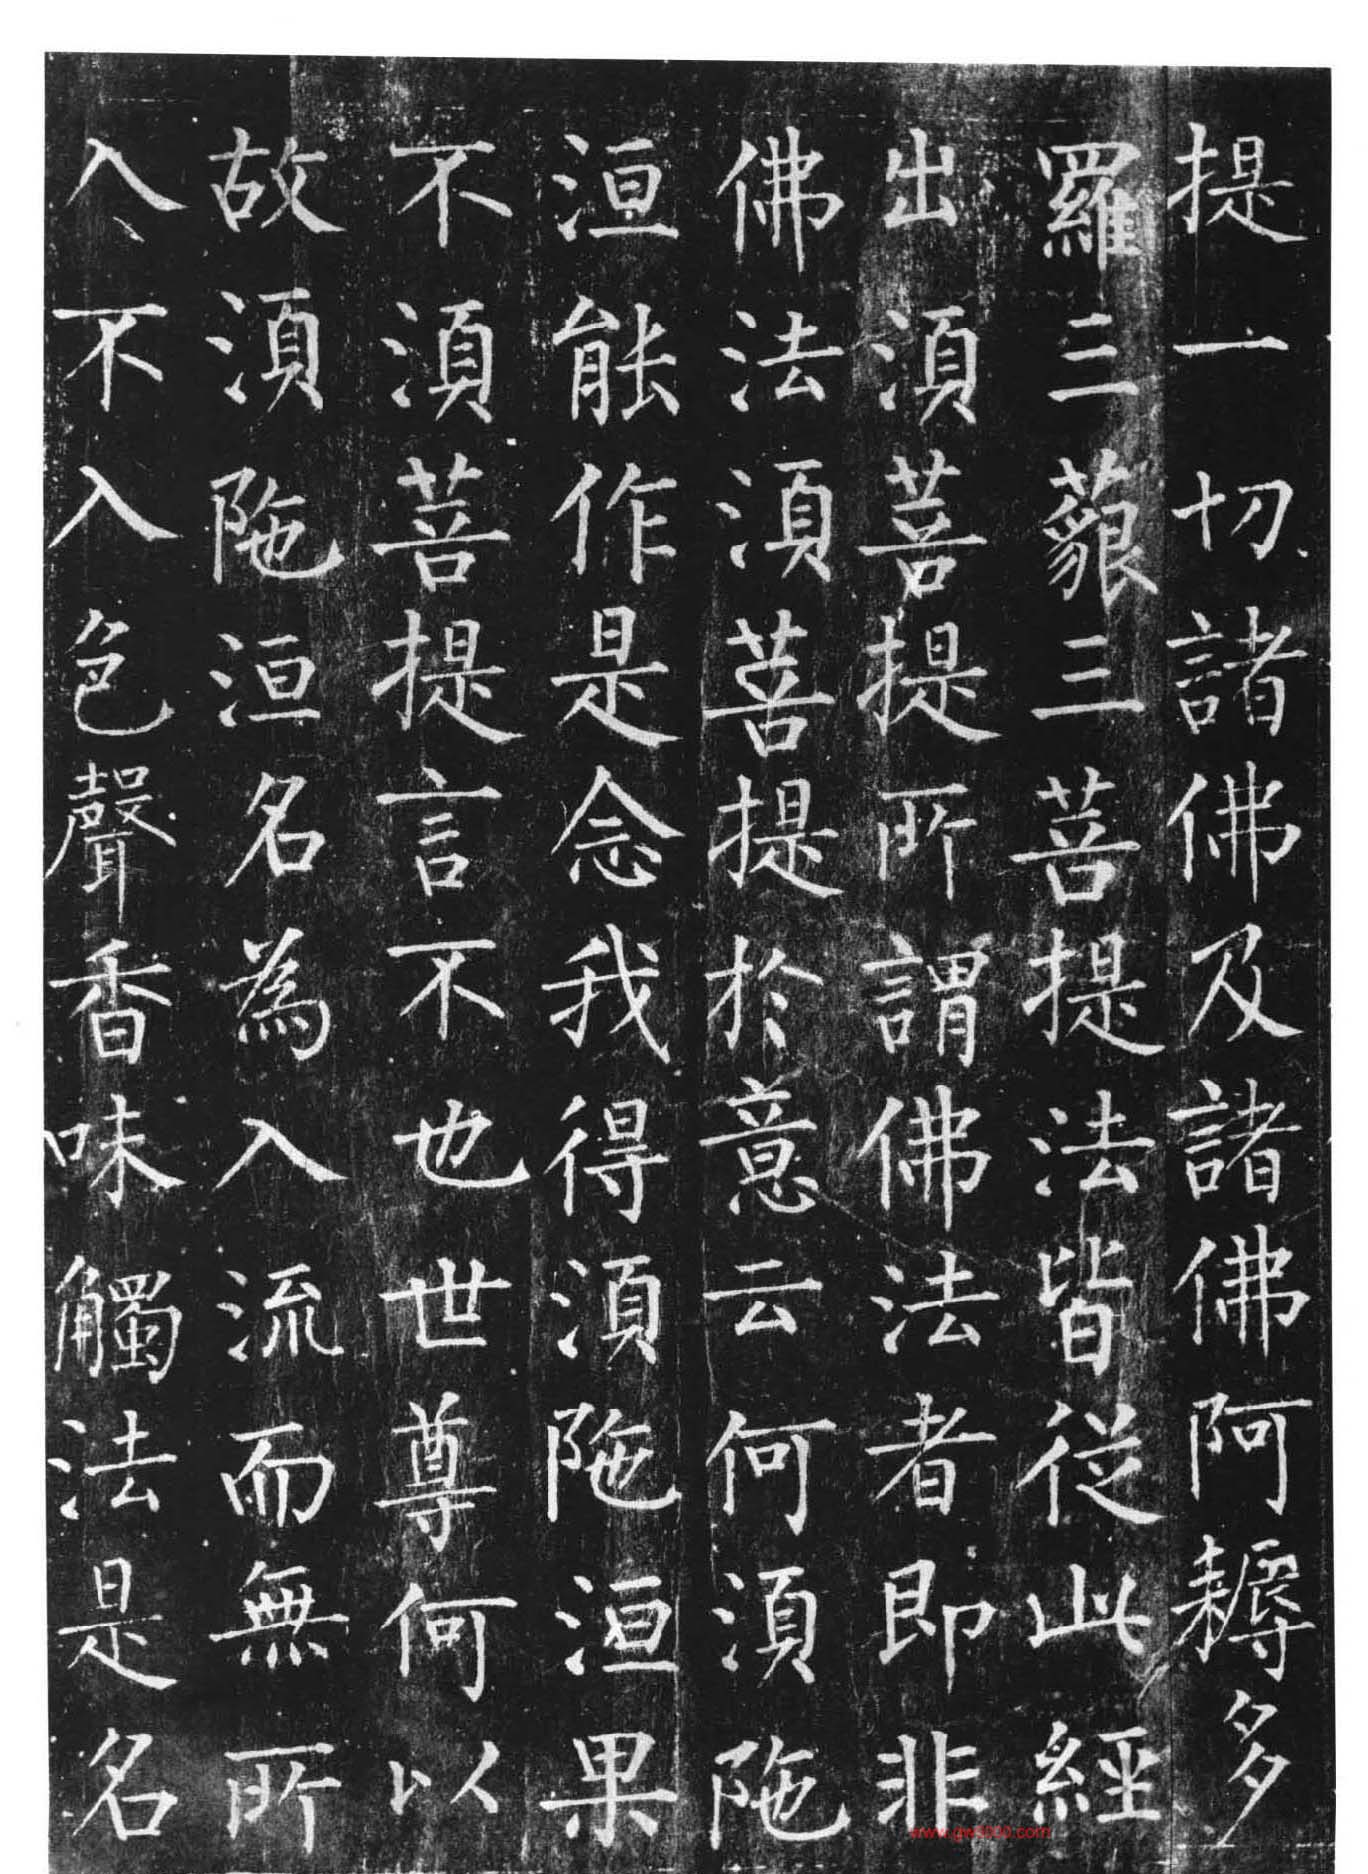 提一切諸佛及諸佛阿耨多
羅三藐三菩提法皆從此經
出湏菩提所謂佛法者即非
佛法湏菩提於意云何湏陁
洹能作是念我得湏陁洹果
不湏菩提言不也世尊何以
故湏陁洹名為入流而無所
入不入色聲香味觸法是名
www.gw3000.com